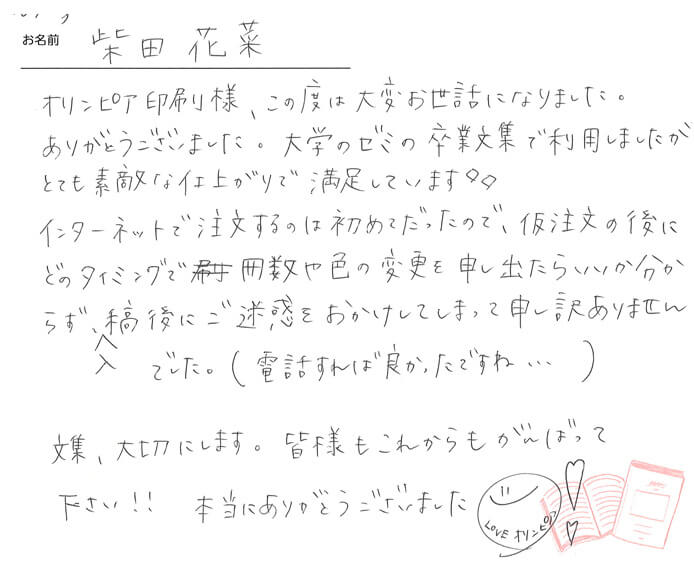 お名前 柴田 花菜
オリンピア印刷様、この度は大変お世話になりました。
ありがとうございました。大学のゼミの卒業文集で利用しましたが
とても素敵な仕上がりで満足しています
インターネットで注文するのは初めてだったので、仮注文の後に
どのタイミングで刷 冊数や色の変更を申し出たらいいか分か
らず、入稿後にご迷惑をおかけしてしまって申し訳ありません
でした。(電話すれば良かったですね…)
文集、大切にします。皆様もこれからもがんばって
下さい!! 本当にありがとうございました
LOVE オリンピア